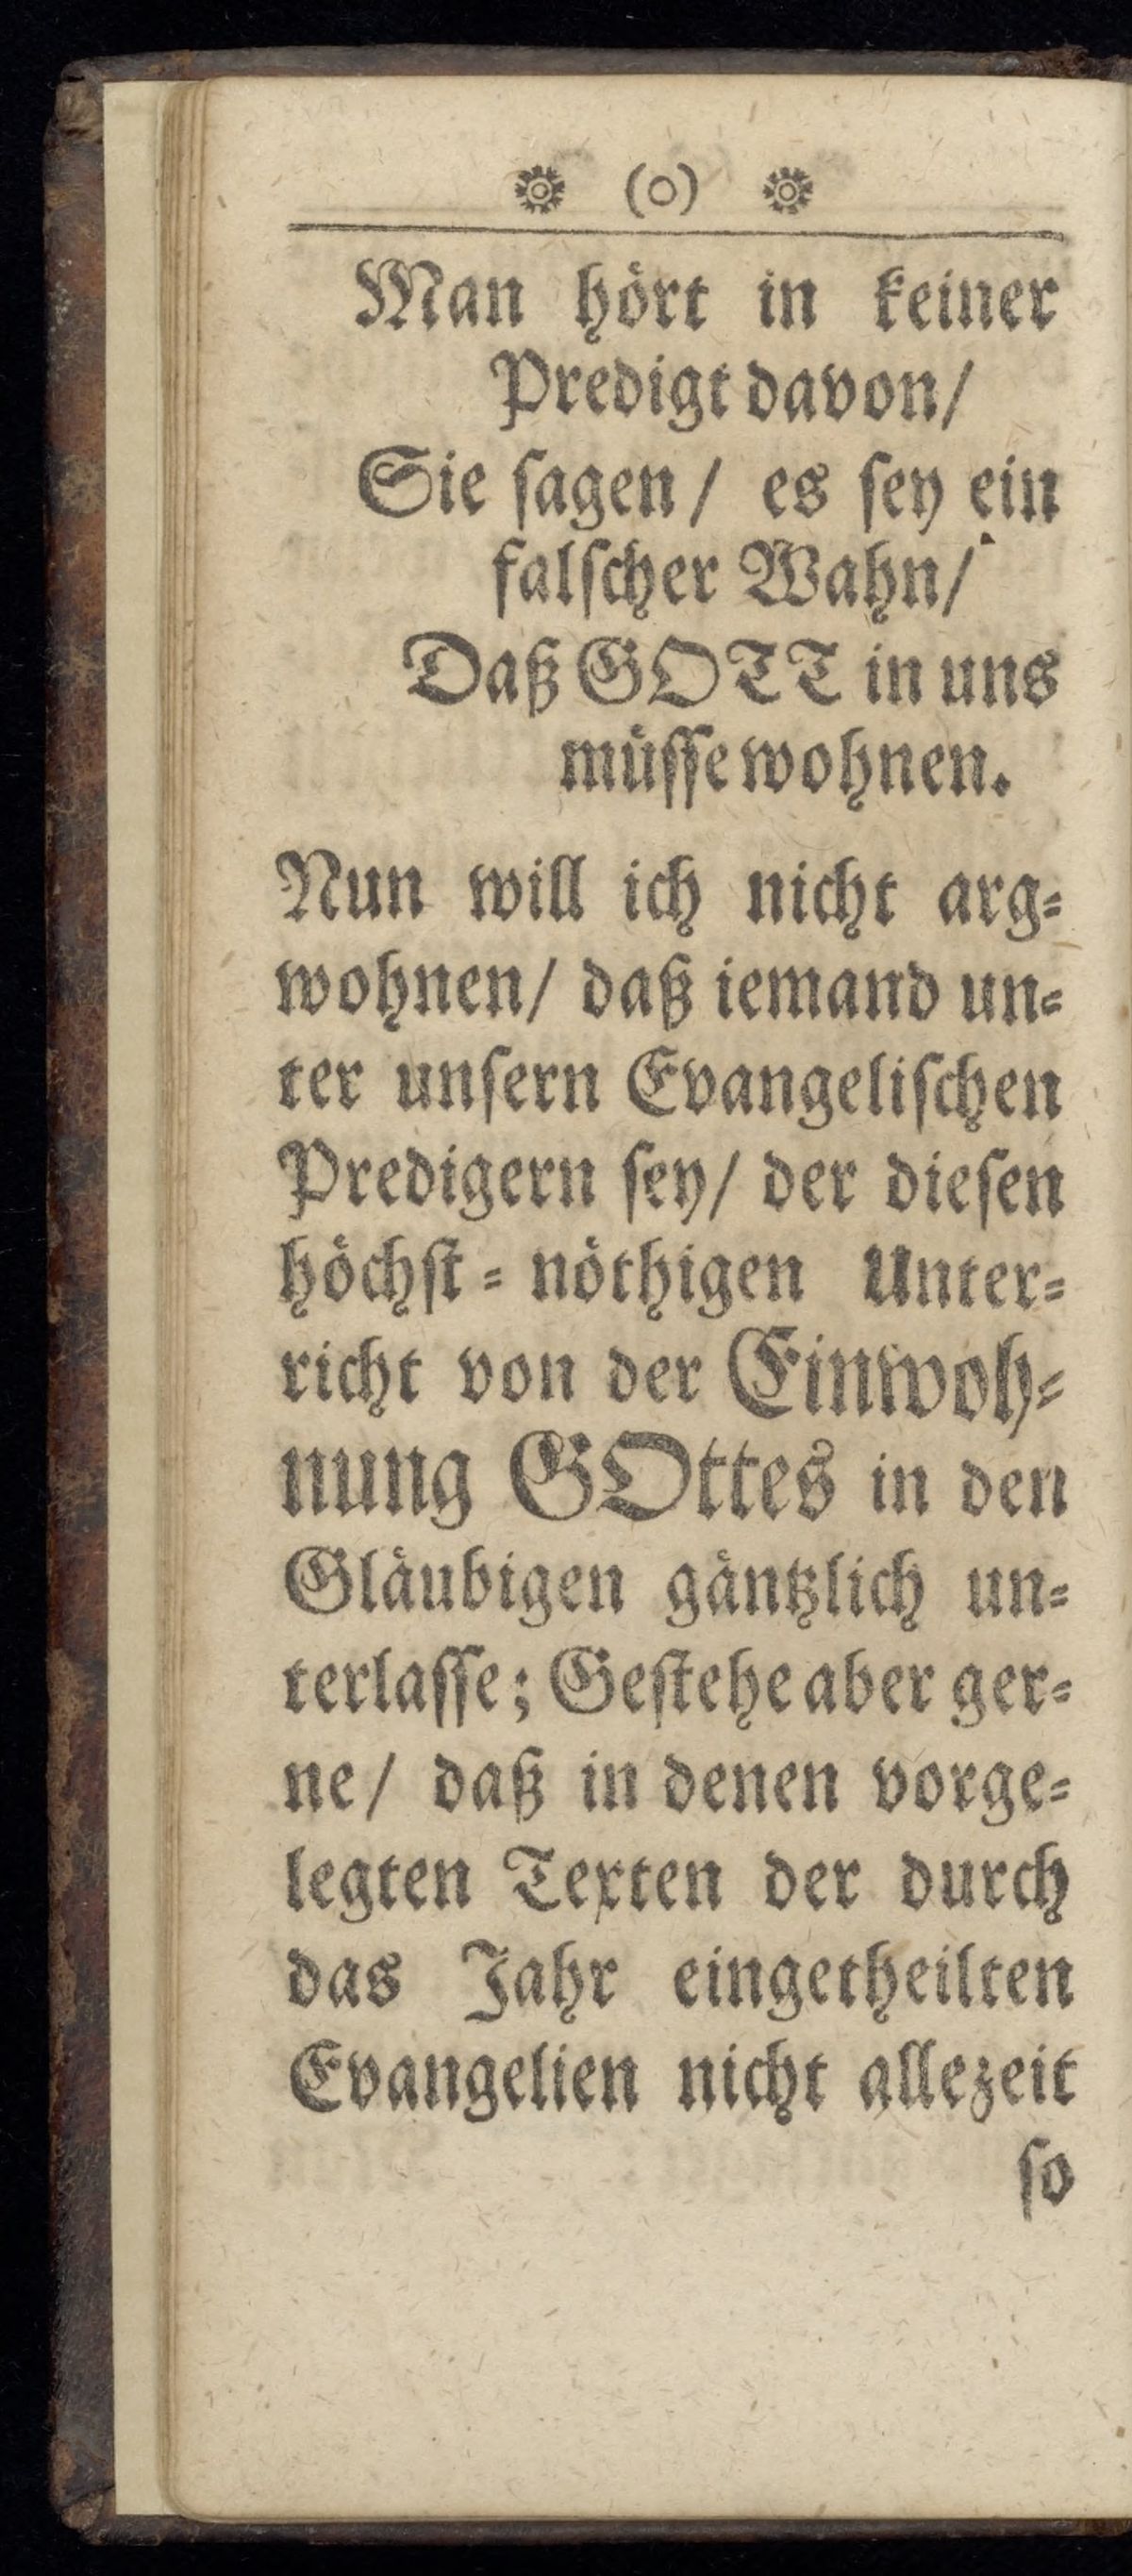 ❁ (o) ❁
Man hört in keiner
Predigt davon/
Sie ſagen/ es ſey ein
falſcher Wahn/
Daß GOTT in uns
müſſe wohnen.
Nun will ich nicht arg⸗
wohnen/ daß iemand un⸗
ter unſern Evangeliſchen
Predigern ſey/ der dieſen
höchſt⸗nöthigen Unter⸗
richt von der Einwoh⸗
nung GOttes in den
Gläubigen gäntzlich un⸗
terlaſſe; Geſtehe aber ger⸗
ne/ daß in denen vorge⸗
legten Texten der durch
das Jahr eingetheilten
Evangelien nicht allezeit
ſo